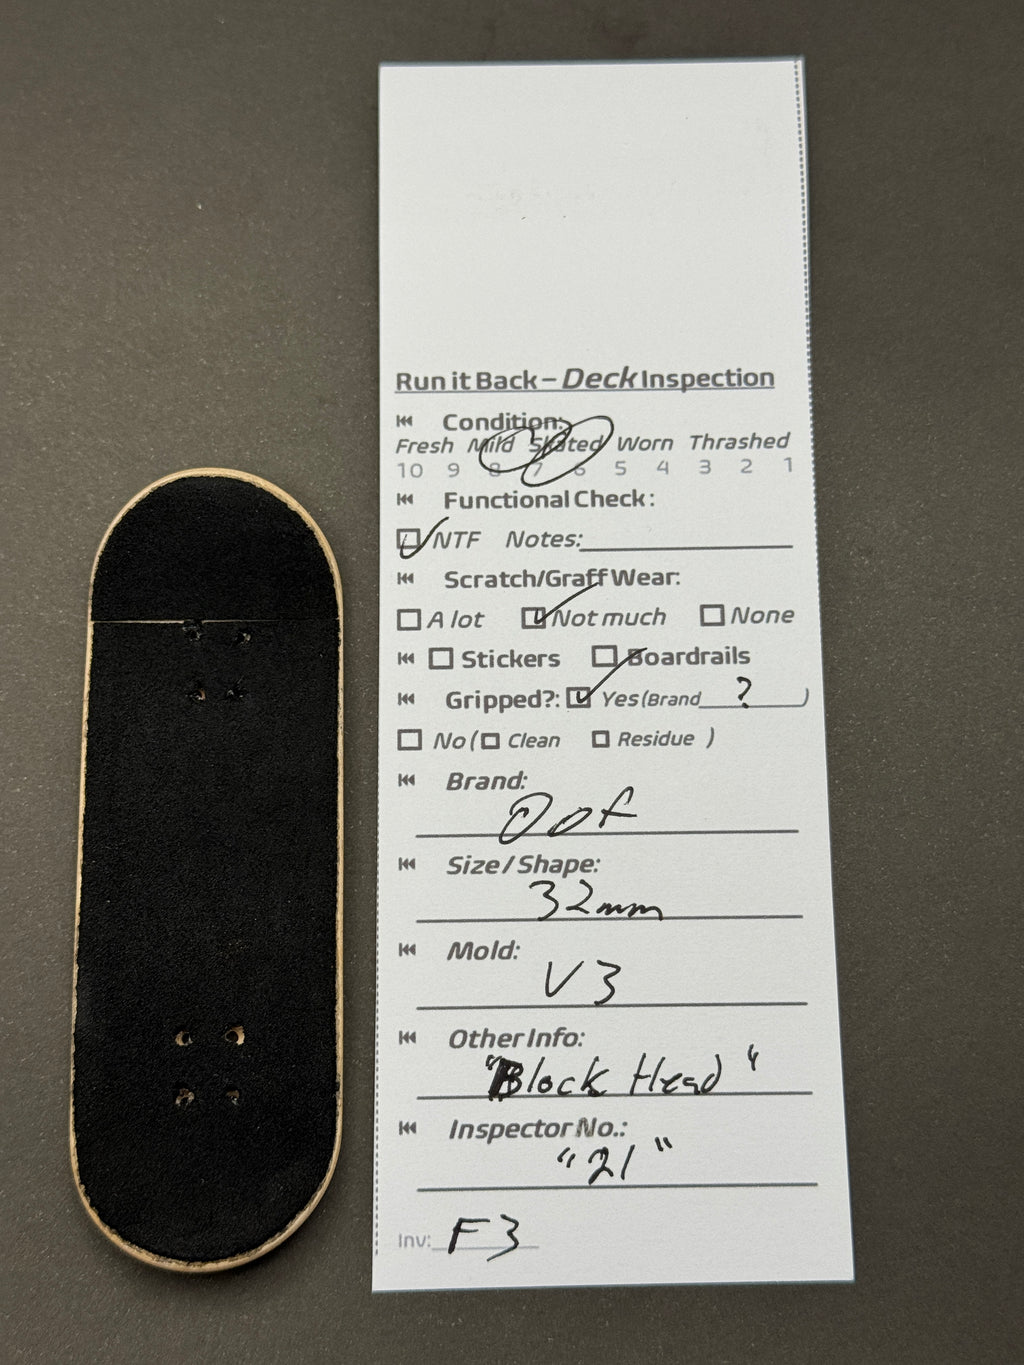 Run it Back – Deck Inspection
Condition:
Fresh Mild Skated Worn Thrashed
10 9 8 7 6 5 4 3 2 1
Functional Check:
NTF Notes:
Scratch/Graff Wear:
A lot Not much None
Stickers Boardrails
Gripped?: Yes (Brand ? )
No ( Clean Residue )
Brand:
Oof
Size / Shape:
32mm
Mold:
V3
Other Info:
"Block Head"
Inspector No.:
"21"
Inv: F3